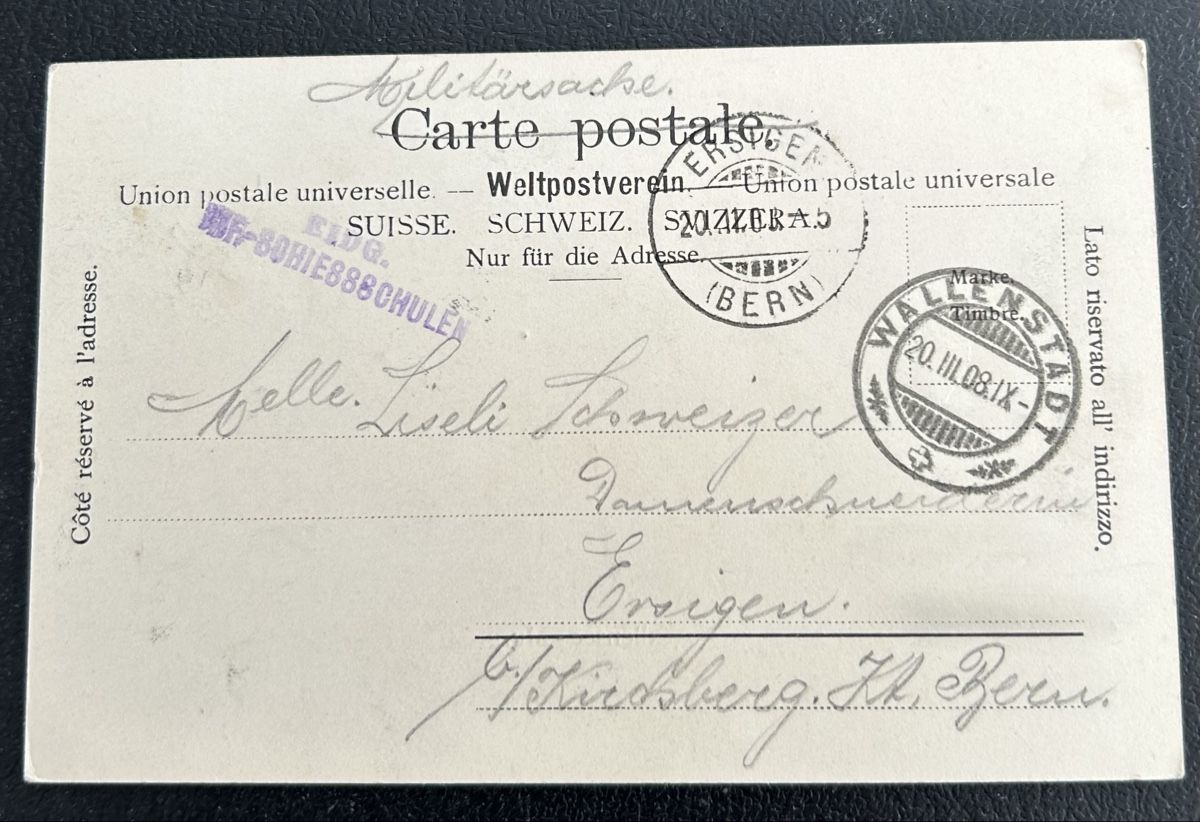 Militärsache.
Carte postale.
Union postale universelle. — Weltpostverein. — Union postale universale
SUISSE. SCHWEIZ. SVIZZERA.
Nur für die Adresse.
EIDG.
SCHIESSSCHULEN
ERSIGEN
(BERN)
Marke.
Timbre.
WALLENSTADT
20.III.08.IX-
Côté réservé à l'adresse.
Lato riservato all' indirizzo.
Melle. Liseli Schweizer
Damenschneiderin
Ersigen.
b/Kirchberg. Kt. Bern.